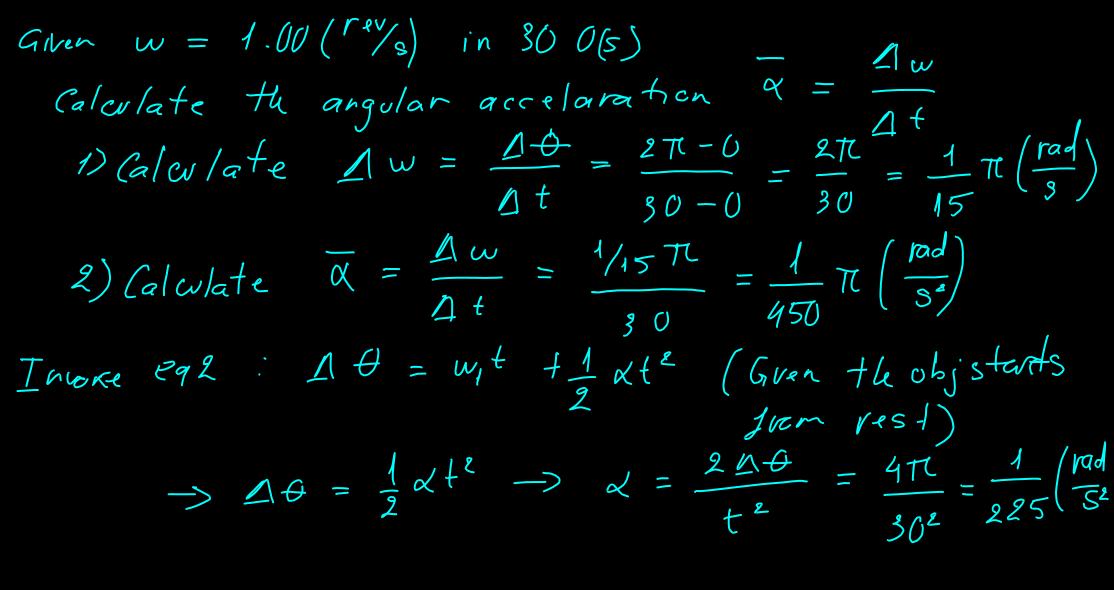 Given w = 1.00 (rev/s) in 30 0(s)
Calculate th angular accelaration ᾱ = Δw / Δt
1) Calculate Δw = Δθ / Δt = 2π - 0 / 30 - 0 = 2π / 30 = 1 / 15 π (rad / s)
2) Calculate ᾱ = Δw / Δt = 1/15 π / 30 = 1 / 450 π (rad / s²)
Invoke eq2 : Δθ = w₁t + 1/2 αt² (Given the obj starts
from rest)
→ Δθ = 1/2 αt² → α = 2Δθ / t² = 4π / 30² = 1 / 225 (rad / s²